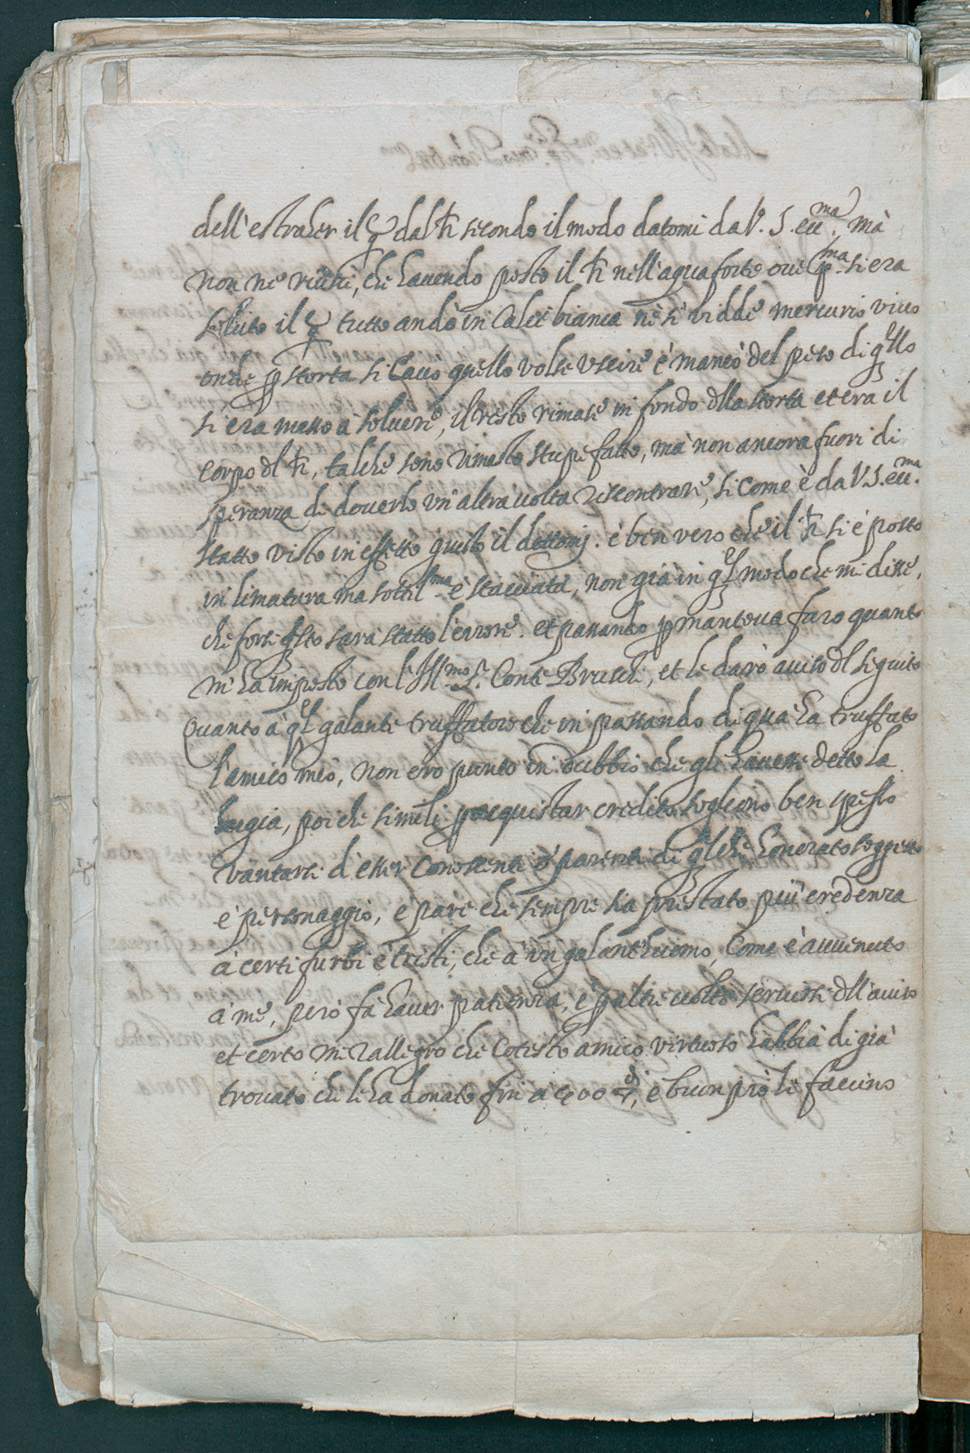 dell'estraher il ☿ dal ♄ secondo il modo datomi da V. S. ecc.ma, mà
non ne riusci, che havendo posto il ♄ nell'aqua forte ove p.ma si era
soluto il ☿ tutto andò in calce bianca nè si vidde mercurio vivo
onde p storta si cavò quello volse uscire è mancò del peso di qllo
si era messo à solvere, il resto rimase in fondo dlla storta et era il
corpo dl ♄, talche sono rimasto stupefatto, mà non ancora fuori di
speranza di doverlo un'altra volta riscontrare, si come è da V. S. ecc.ma
statto visto in effetto questo il dettomi. è ben vero che il ♄ si è posto
in limatura ma sottil.ma è stacciata, non già in ql modo che mi disse,
che forse qsto sarà statto l'errore. et passando p Mantova farò quanto
m'ha imposto con l'Ill.mo S.r Conte Bruschi, et le darò aviso dl seguito
Quanto à ql galante truffatore che in passando di quà ha truffato
l'amico mio, non ero punto in dubbio che gli havesse detto la
bugia, poi che simili p acquistar credito sogliono ben spesso
vantarsi d'esser conoscenti ò parenti di qlche honorato soggetto
e personaggio, e pare che sempre sia prestato più credenza
à certi furbi è tristi, che à un galanthuomo, come è avvenuto
à me, però fa haver patienza, è p altre volte servirsi dll'aviso
et certo mi rallegro che cotesto amico virtuoso habbia di già
trovato chi li ha donato fin à 400 ▽di, è buon prò li faccino